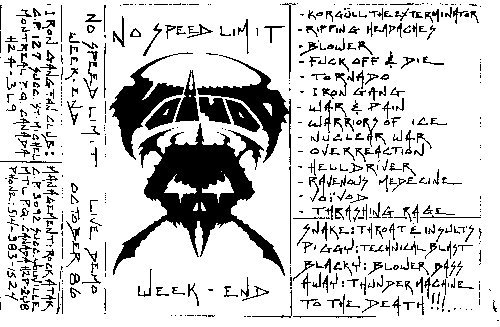 IRON GANG FAN CLUB:
C.P. 127 SUCC. ST-MICHEL
MONTREAL P.Q. CANADA
H2A-3L9
MANAGEMENT: ROCK ATAK
MTL P.Q. CANADA
PHONE: 514-383-1524
NO SPEED LIMIT
WEEK-END
LIVE DEMO
OCTOBER 86
NO SPEED LIMIT
VOIVOD
WEEK-END
- KORGÜLL THE EXTERMINATOR
- RIPPING HEADACHES
- BLOWER
- FUCK OFF & DIE
- TORNADO
- IRON GANG
- WAR & PAIN
- WARRIORS OF ICE
- NUCLEAR WAR
- OVERREACTION
- HELLDRIVER
- RAVENOUS MEDECINE
- VOIVOD
- THRASHING RAGE
SNAKE: THROAT & INSULTS
PIGGY: TECHNICAL BLAST
BLACKY: BLOWER BASS
AWAY: THUNDER MACHINE
TO THE DEATH!!!